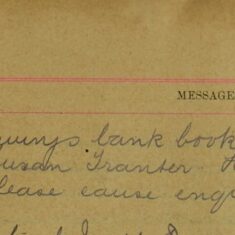 MESSAGE
vings bank book
usan Tranter.
lease cause enq